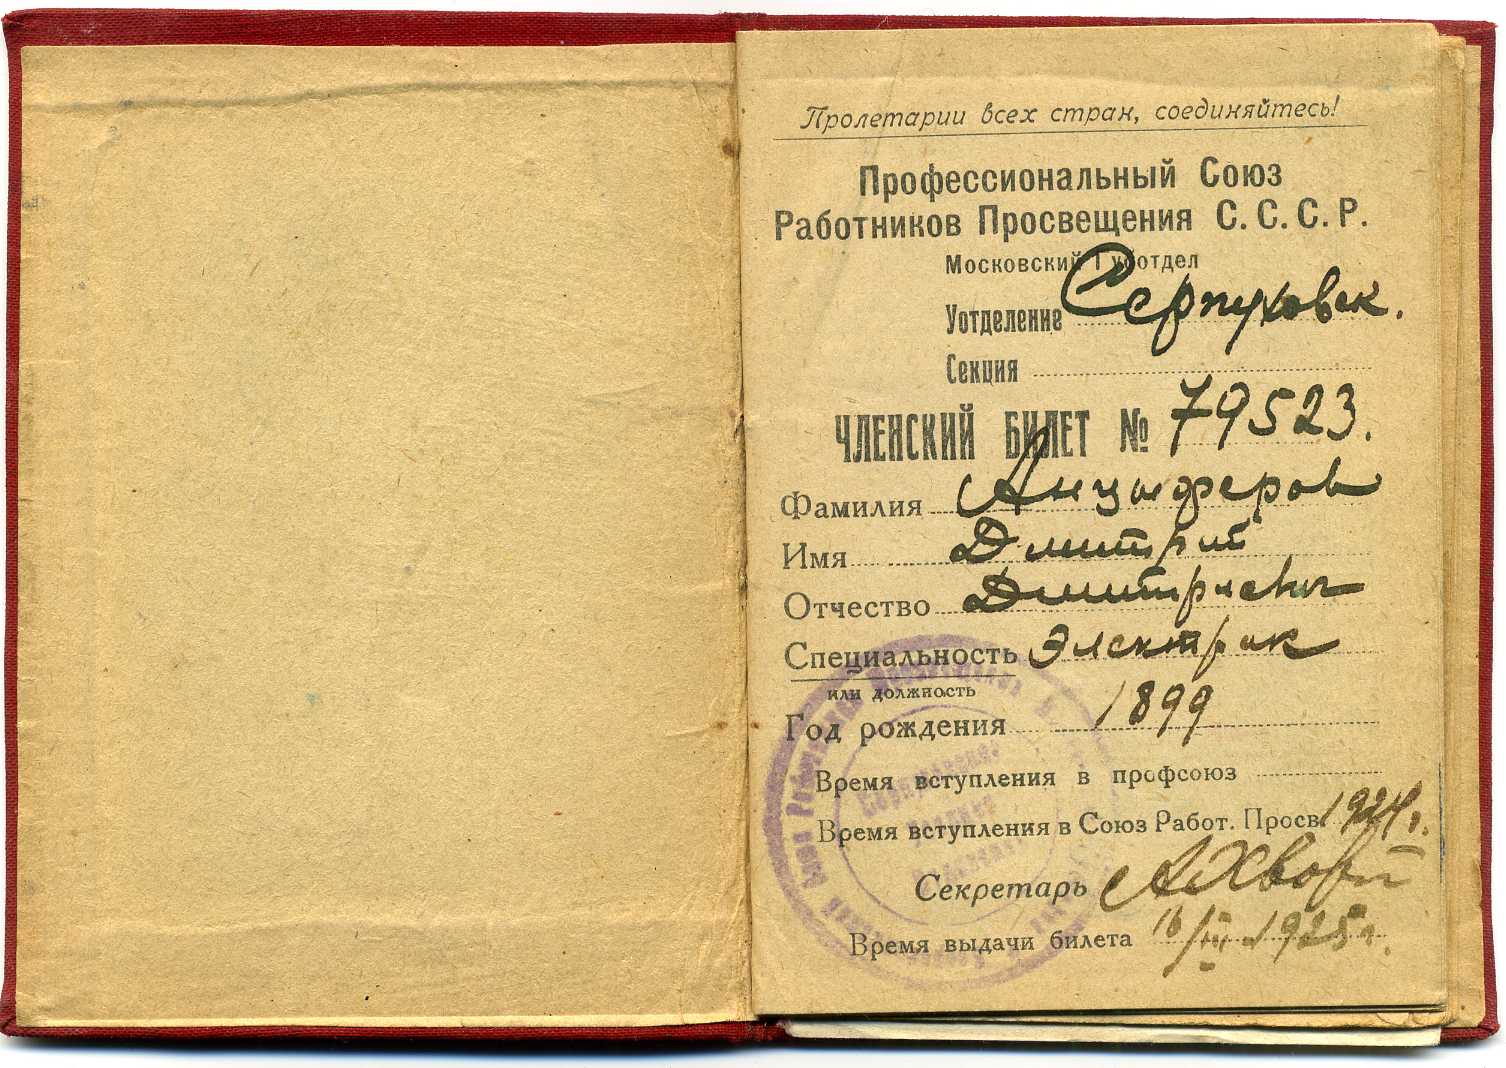 Пролетарии всех стран, соединяйтесь!
Профессиональный Союз
Работников Просвещения С. С. С. Р.
Московский Губотдел
Уотделение Серпуховск.
Секция
ЧЛЕНСКИЙ БИЛЕТ № 79523.
Фамилия Анцыферов
Имя Дмитрий
Отчество Дмитриевич
Специальность Электрик
или должность
Год рождения 1899
Время вступления в профсоюз
Время вступления в Союз Работ. Просв. 1924г.
Секретарь
Время выдачи билета 1925г.